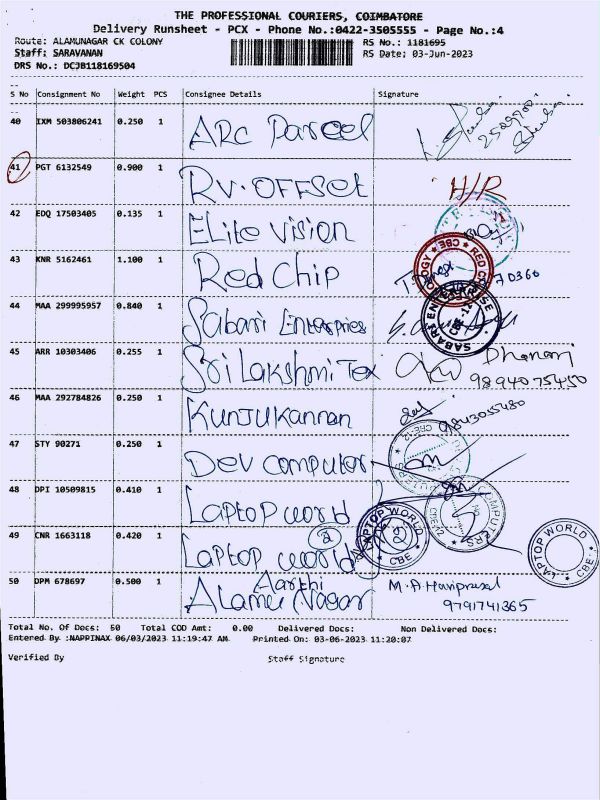 THE PROFESSIONAL COURIERS, COIMBATORE
Delivery Runsheet - PCX - Phone No.:0422-3505555 - Page No.:4
Route: ALAMUNAGAR CK COLONY RS No.: 1181695
Staff: SARAVANAN RS Date: 03-Jun-2023
DRS No.: DCJB118169504
S No Consignment No Weight PCS Consignee Details Signature
40 IXM 503806241 0.250 1 ARC Parcel
41 PGT 6132549 0.900 1 RV. OFFSET H/R
42 EDQ 17503405 0.135 1 ELite Vision
43 KNR 5162461 1.100 1 Red Chip 70360
RED CBE
44 MAA 299995957 0.840 1 Sabari Enterpries
SABARI CBE-12
45 ARR 10303406 0.255 1 Sri Lakshmi Tex
9894075450
46 MAA 292784826 0.250 1 Kunjukannan 9843055480
47 STY 90271 0.250 1 Dev computer
CBE-12
48 DPI 10509815 0.410 1 Laptop world
LAPTOP WORLD CBE
COMPUTERS CBE-12
49 CNR 1663118 0.420 1 Laptop world 2
LAPTOP WORLD CBE
50 DPM 678697 0.500 1 Aarthi Alamu Nagar M.A. Hariprasad
9791741365
Total No. Of Docs: 50 Total COD Amt: 0.00 Delivered Docs: Non Delivered Docs:
Entered By :NAPPINAX 06/03/2023 11:19:47 AM Printed On: 03-06-2023 11:20:07
Verified By Staff Signature